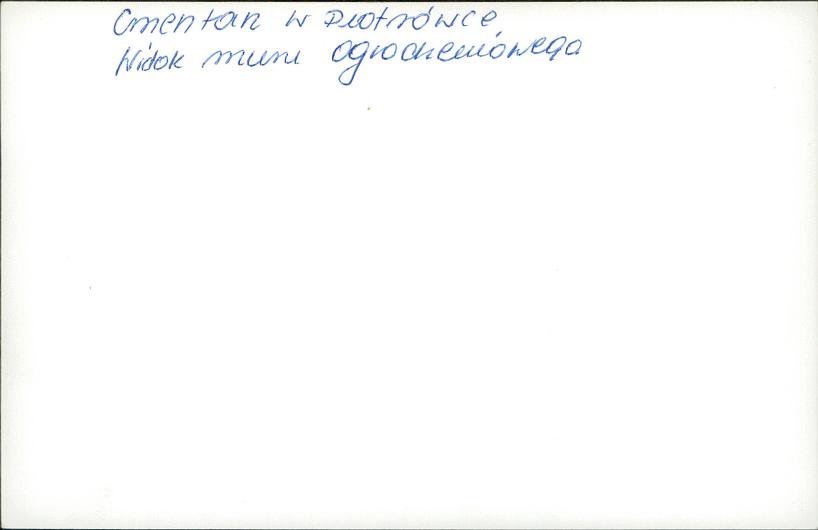 Cmentarz w Piotrówce
Widok muru ogrodzeniowego